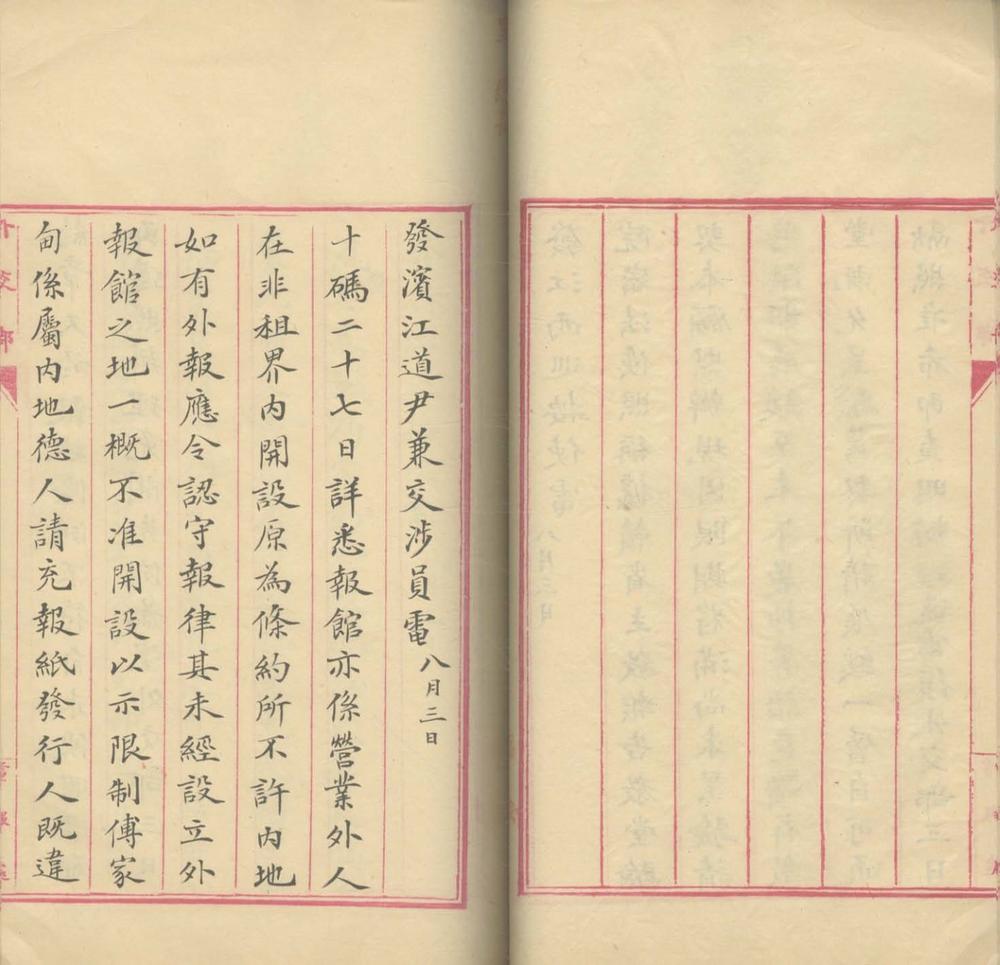 發濱江道尹兼交涉員電八月三日
十碼二十七日詳悉報館亦係營業外人
在非租界內開設原為條約所不許內地
如有外報應令認守報律其未經設立外
報館之地一概不准開設以示限制傅家
甸係屬內地德人請充報紙發行人既違